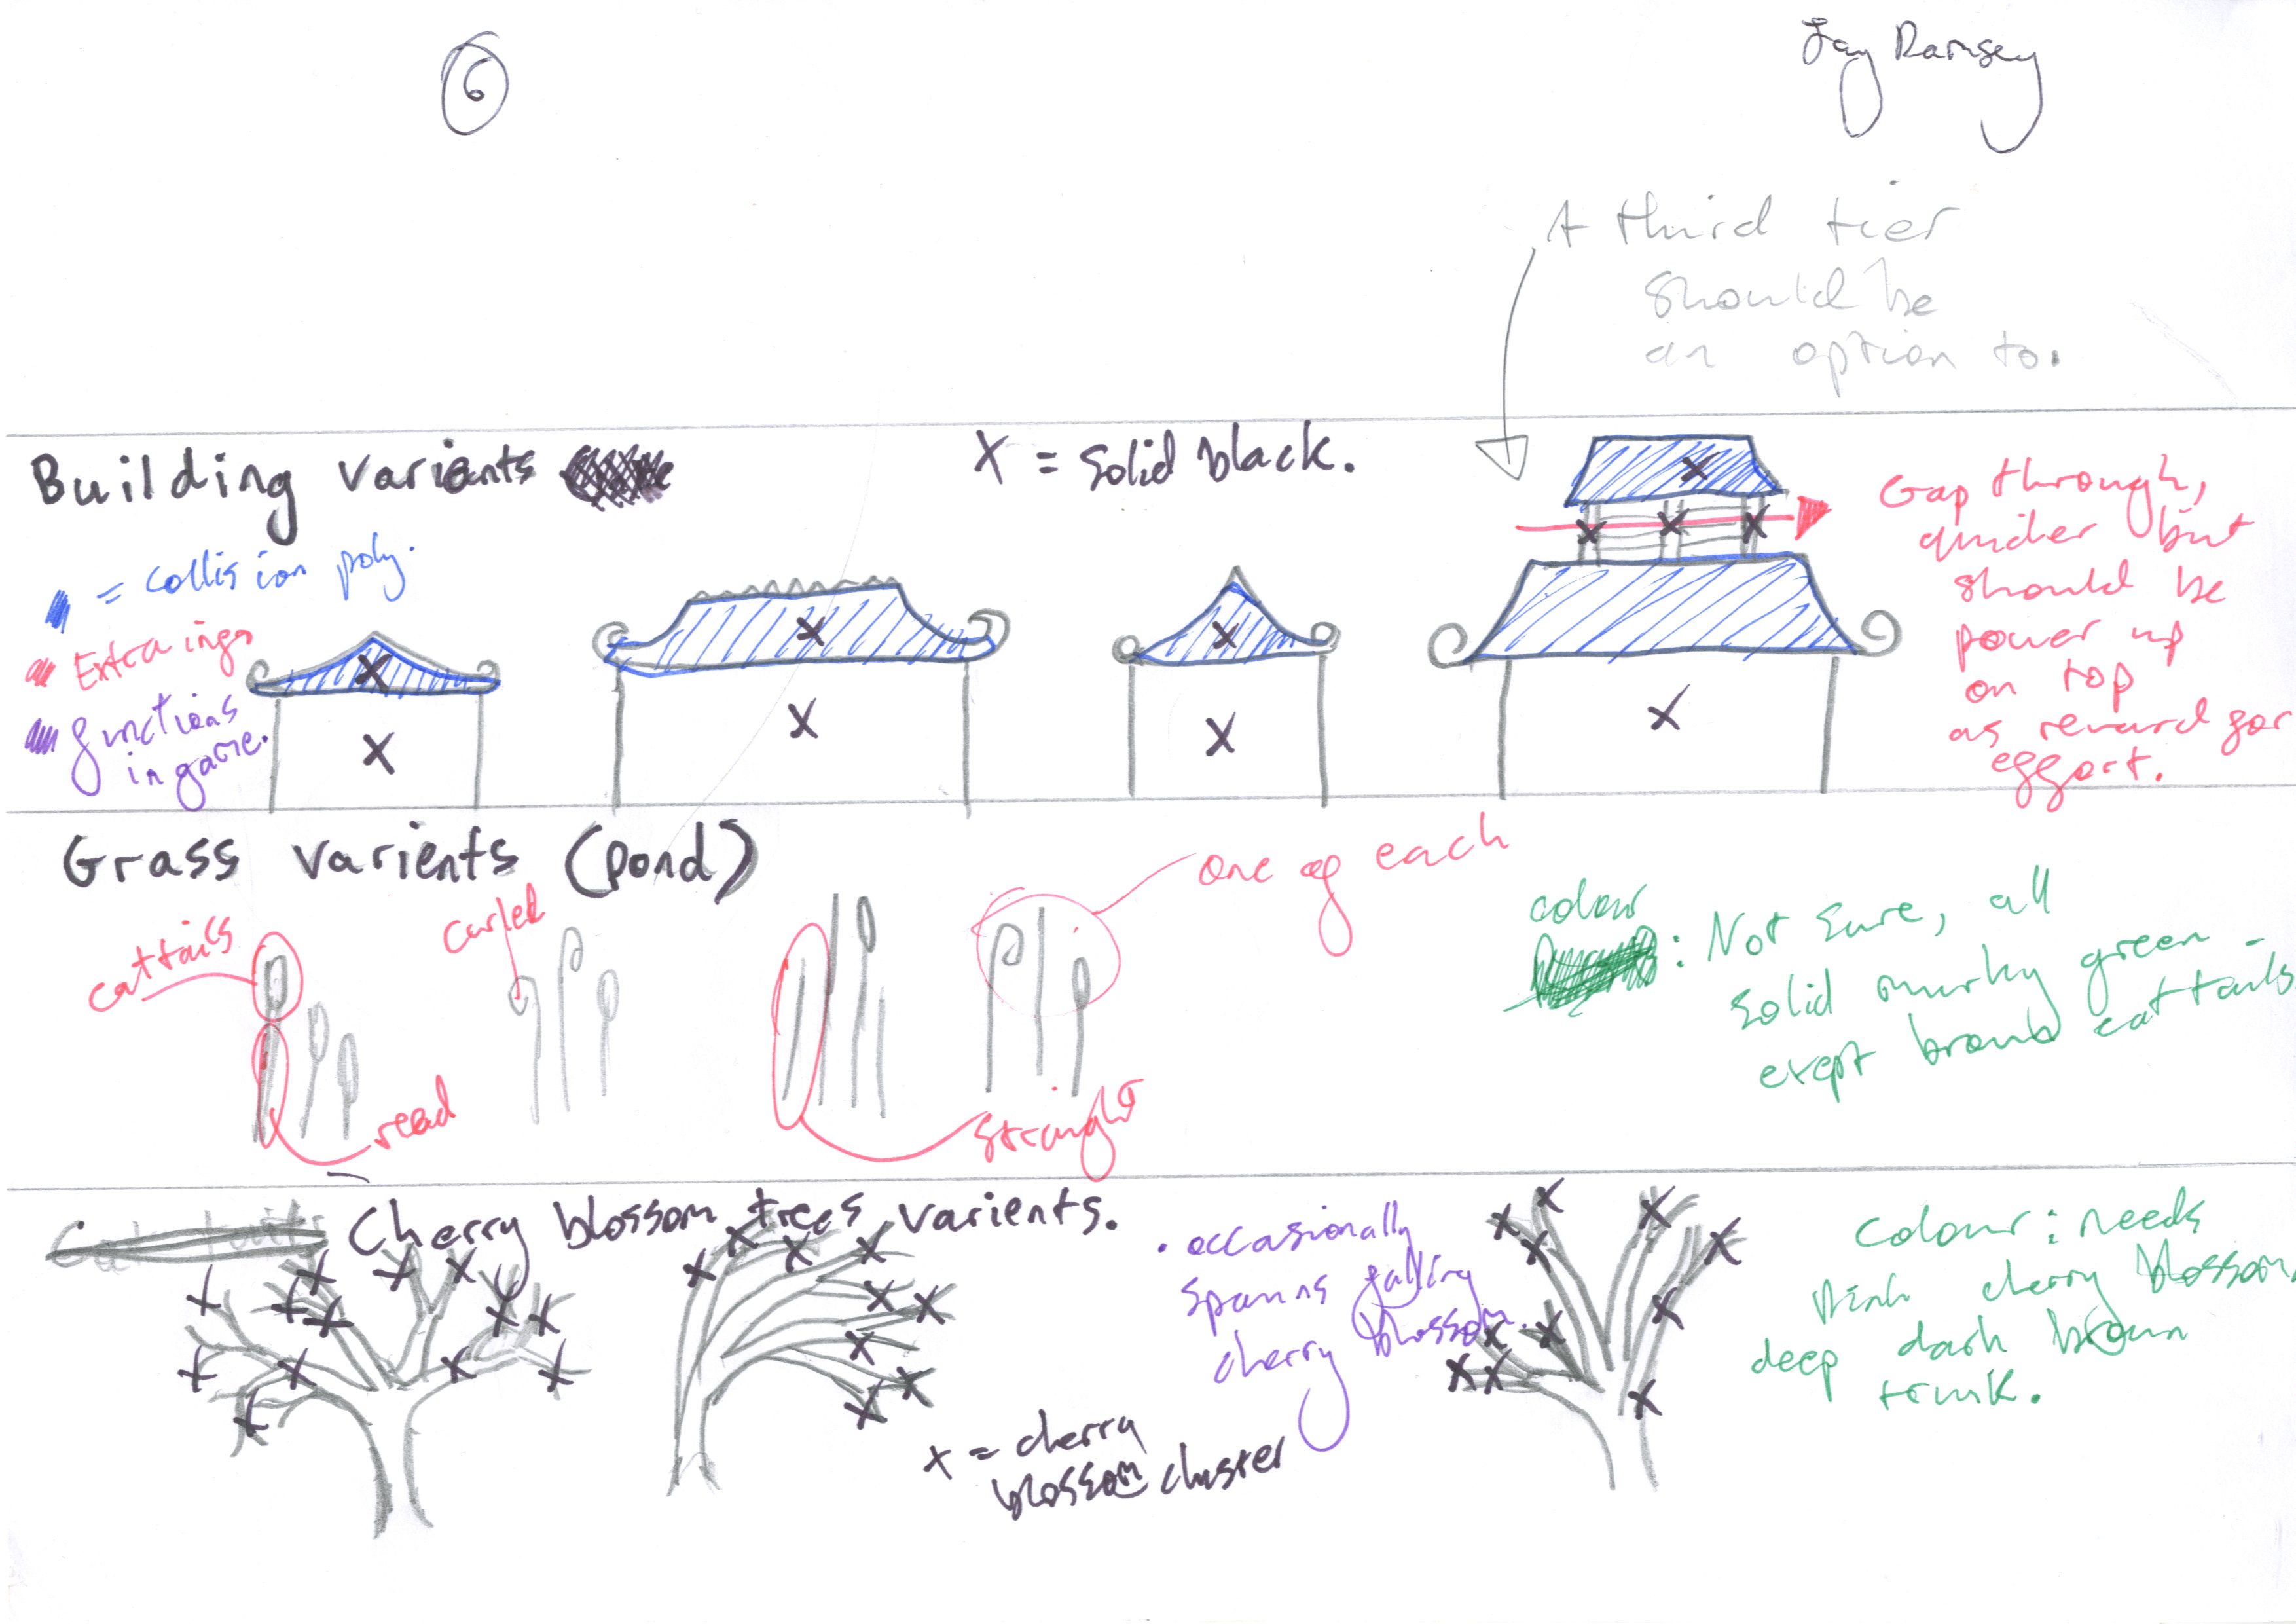 6
Jay Ramsey
A third tier
should be
an option to.
Building varients
X = solid black.
= collision poly.
Extra ingo
functions
in game.
Gap through,
quicker but
should be
power up
on top
as reward for
effort.
Grass varients (pond)
cattails
curled
one of each
read
straight
colour
: Not sure, all
solid murky green
exept brown cattails
Cherry blossom trees varients.
• occasionally
spawns falling
cherry blossom.
x = cherry
blossom cluster
Colour : needs
Pink cherry blossom,
deep dark brown
trunk.